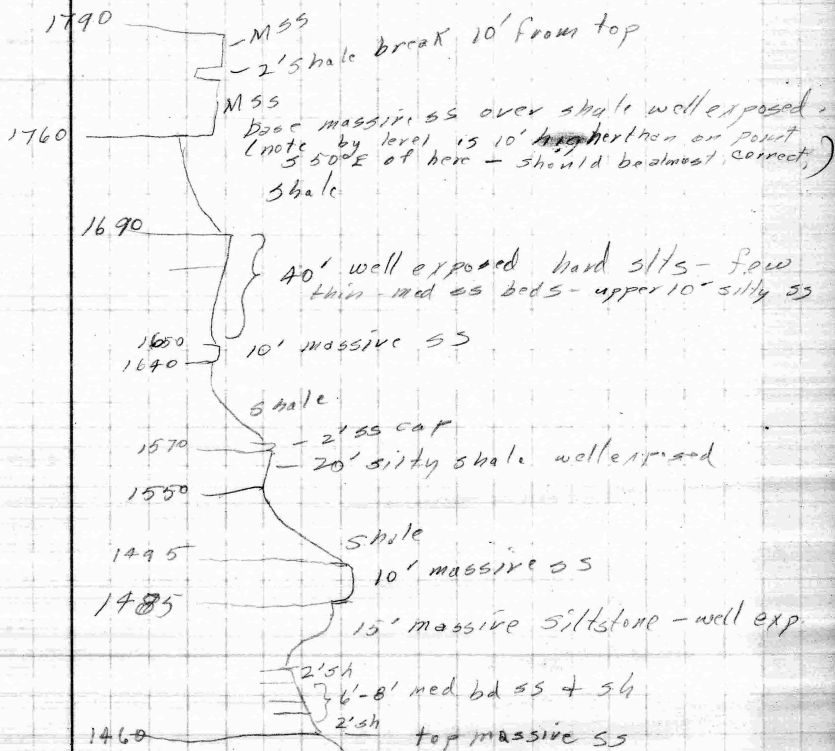 1790
- MSS
- 2' shale break 10' from top
MSS
base massive ss over shale well exposed.
1760
(note by level is 10' higher than on point
S 50° E of here - should be almost correct.)
Shale
1690
40' well exposed hard slts - few
thin - med ss beds - upper 10' silty ss
1650
10' massive ss
1640
shale
- 2' ss cap
1570
- 20' silty shale well exposed
1550
Shale
1495
10' massive ss
1485
15' massive siltstone - well exp.
2' sh
6'-8' med bd ss & sh
2' sh
1460
top massive ss